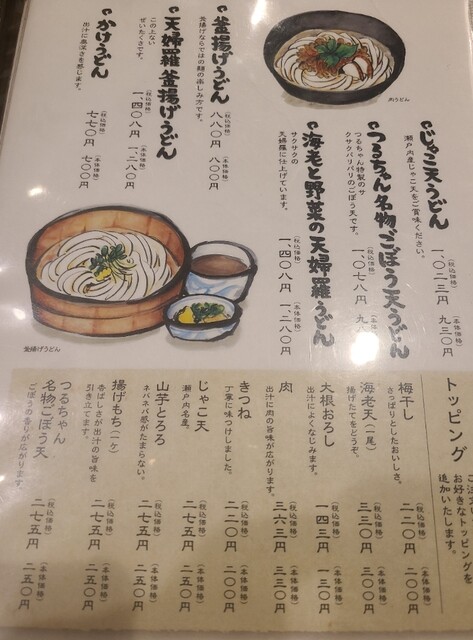 肉うどん
じゃこ天うどん
瀬戸内産じゃこ天をご賞味ください。
(税込価格) 一、〇二三円 (本体価格) 九三〇円
つるちゃん名物ごぼう天うどん
つるちゃん特製のサ
クサクパリパリのごぼう天です。
(税込価格) 一、〇七八円 (本体価格) 九八〇円
海老と野菜の天婦羅うどん
サクサクの
天婦羅に仕上げています。
(税込価格) 一、四〇八円 (本体価格) 一、二八〇円
釜揚げうどん
釜揚げならではの麺の楽しみ方です。
(税込価格) 八八〇円 (本体価格) 八〇〇円
天婦羅釜揚げうどん
この上ない
ぜいたくさです。
(税込価格) 一、四〇八円 (本体価格) 一、二八〇円
かけうどん
出汁に奥深さを感じます。
(税込価格) 七七〇円 (本体価格) 七〇〇円
釜揚げうどん
トッピング
お好きなトッピングを
追加いたします。
梅干し
さっぱりとしたおいしさ。
(税込価格) 二二〇円 (本体価格) 二〇〇円
海老天(二尾)
揚げたてをどうぞ。
(税込価格) 三三〇円 (本体価格) 三〇〇円
大根おろし
出汁によくなじみます。
(税込価格) 一四三円 (本体価格) 一三〇円
肉
出汁に肉の旨味が広がります。
(税込価格) 三六三円 (本体価格) 三三〇円
きつね
丁寧に味つけしました。
(税込価格) 二二〇円 (本体価格) 二〇〇円
じゃこ天
瀬戸内名産。
(税込価格) 二七五円 (本体価格) 二五〇円
山芋とろろ
ネバネバ感がたまらない。
(税込価格) 二七五円 (本体価格) 二五〇円
揚げもち(一ケ)
香ばしさが出汁の旨味を
引き立てます。
(税込価格) 二七五円 (本体価格) 二五〇円
つるちゃん
名物ごぼう天
ごぼうの香りが広がります。
(税込価格) 二七五円 (本体価格) 二五〇円